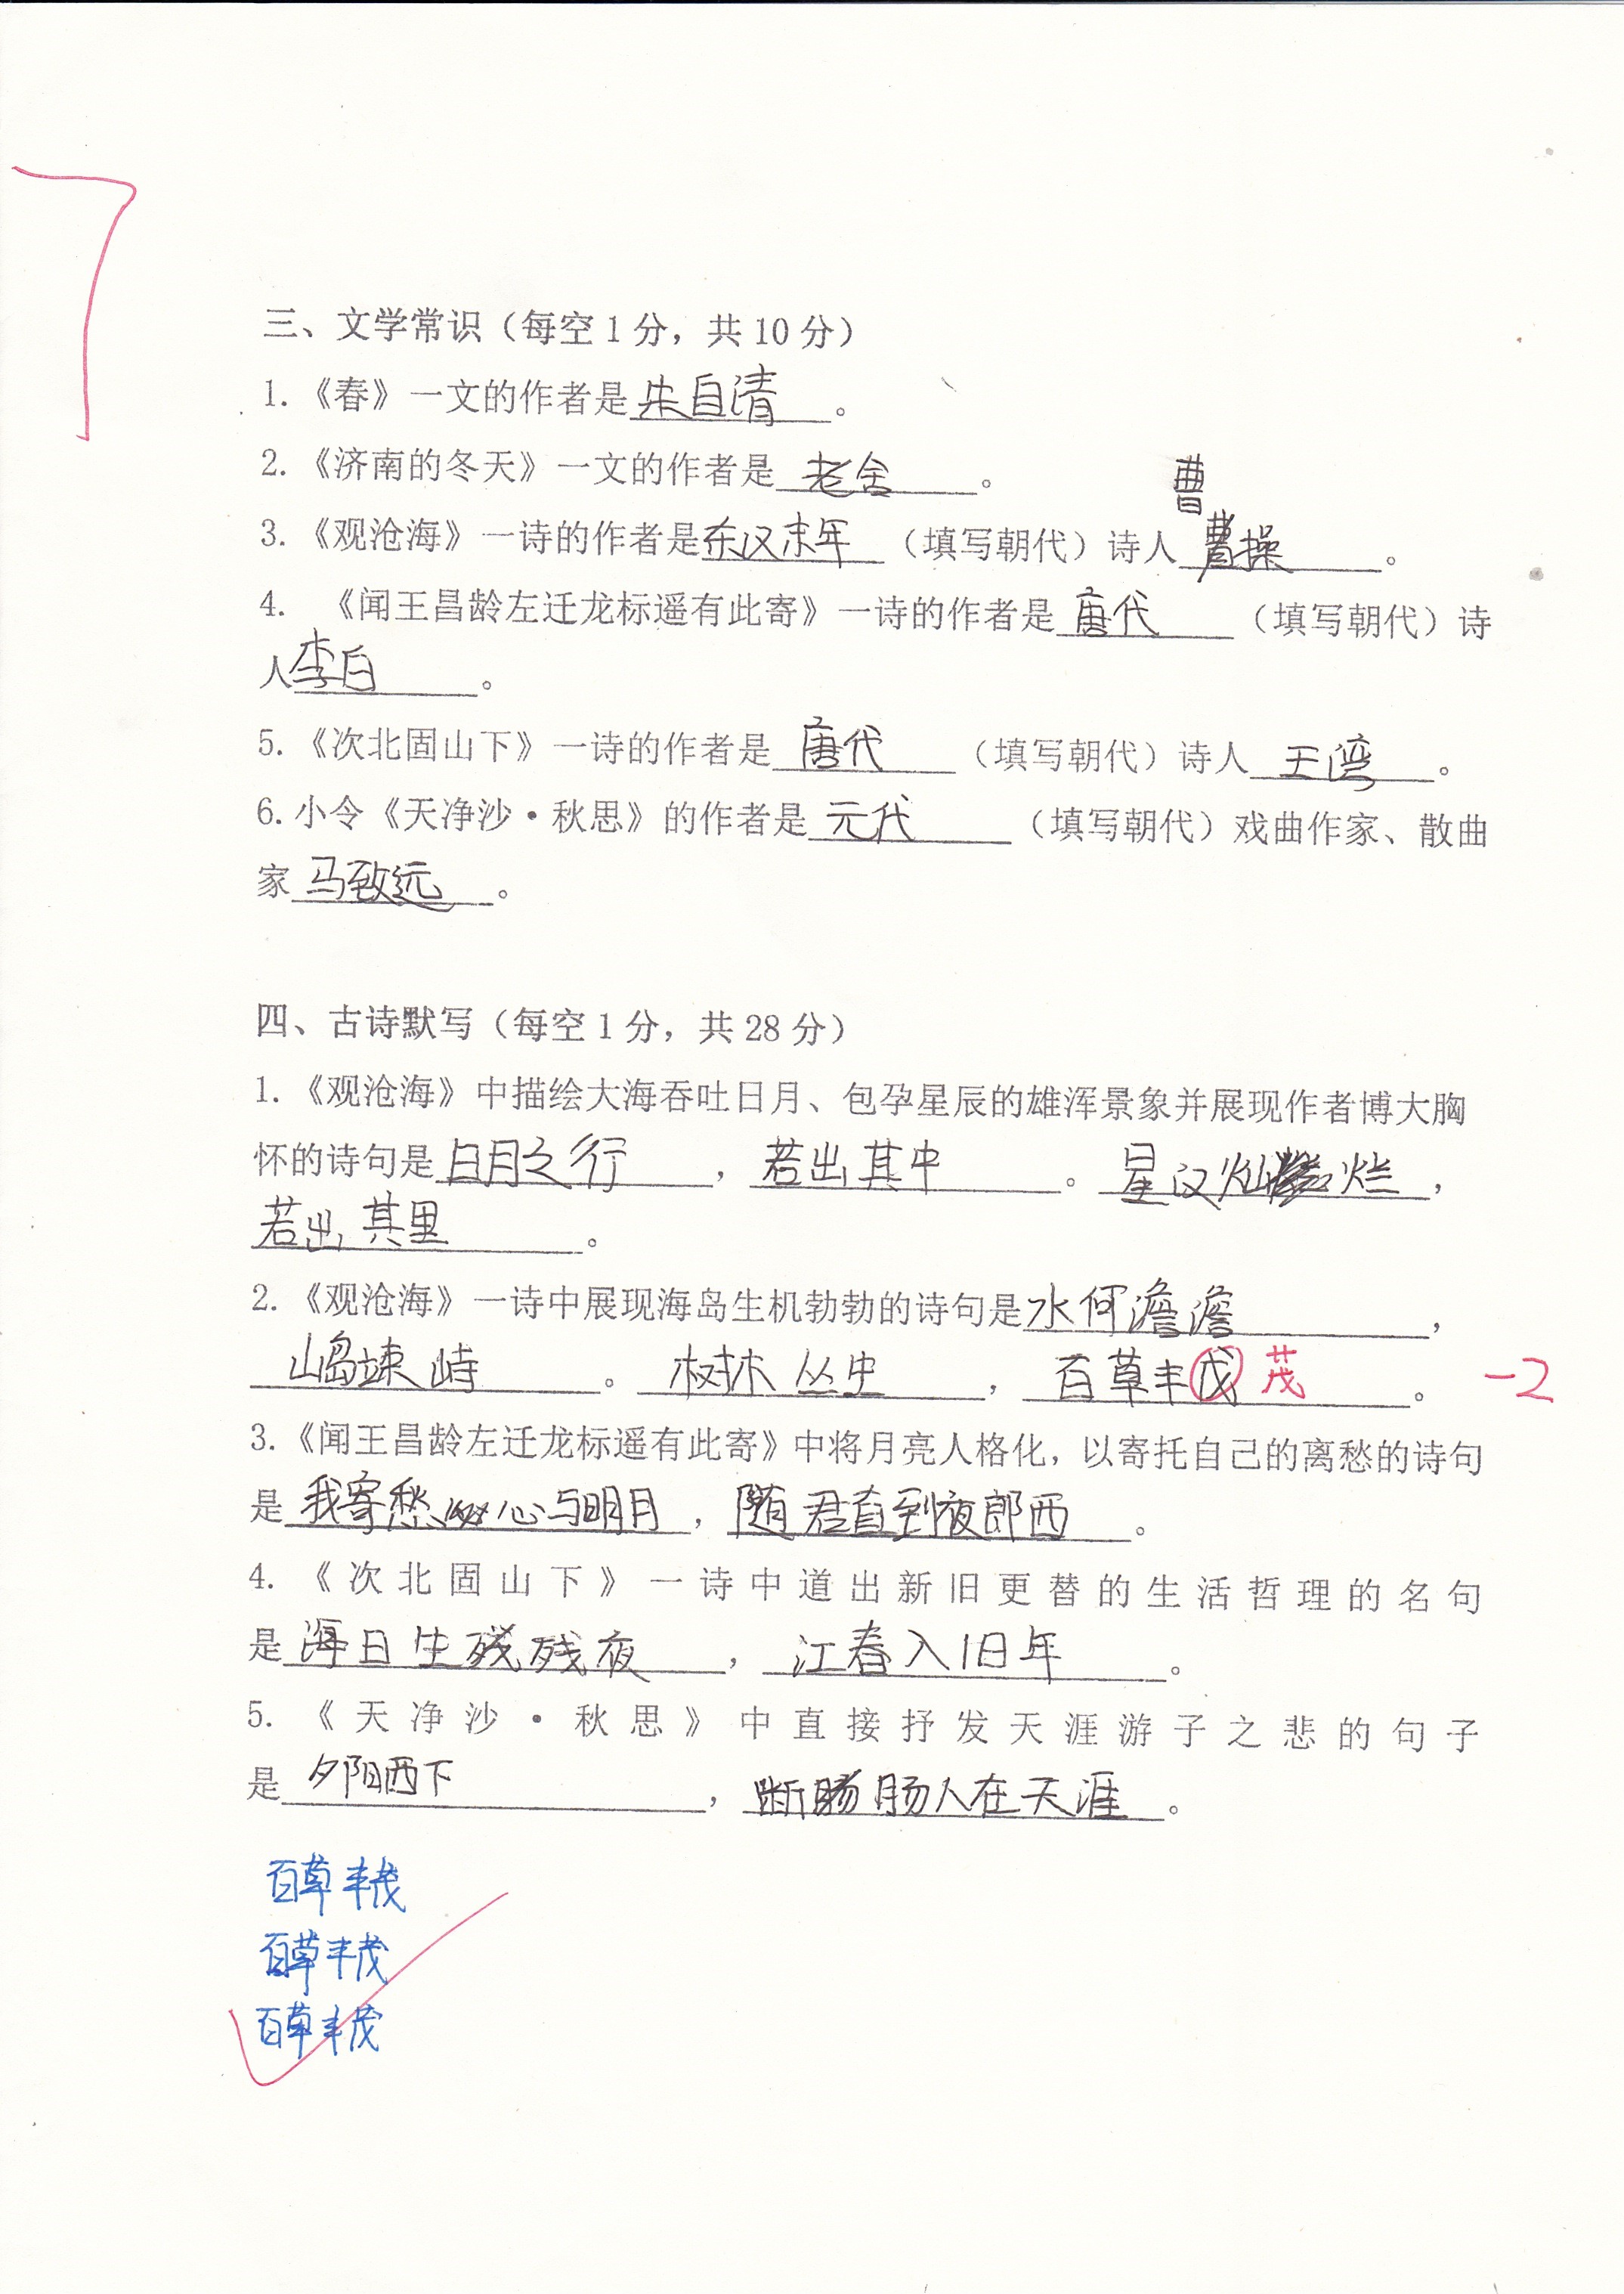 7
三、文学常识（每空1分，共10分）
1.《春》一文的作者是朱自清。
2.《济南的冬天》一文的作者是老舍。
曹
3.《观沧海》一诗的作者是东汉末年（填写朝代）诗人操。
4.《闻王昌龄左迁龙标遥有此寄》一诗的作者是唐代（填写朝代）诗
人李白。
5.《次北固山下》一诗的作者是唐代（填写朝代）诗人王湾。
6.小令《天净沙·秋思》的作者是元代（填写朝代）戏曲作家、散曲
家马致远。
四、古诗默写（每空1分，共28分）
1.《观沧海》中描绘大海吞吐日月、包孕星辰的雄浑景象并展现作者博大胸
怀的诗句是日月之行，若出其中。星汉灿烂，
若出其里。
2.《观沧海》一诗中展现海岛生机勃勃的诗句是水何澹澹，
山岛竦峙。树木丛生，百草丰戊 茂。 -2
3.《闻王昌龄左迁龙标遥有此寄》中将月亮人格化，以寄托自己的离愁的诗句
是我寄愁心与明月，随君直到夜郎西。
4.《次北固山下》一诗中道出新旧更替的生活哲理的名句
是海日生残夜，江春入旧年。
5.《天净沙·秋思》中直接抒发天涯游子之悲的句子
是夕阳西下，断肠人在天涯。
百草丰茂
百草丰茂
百草丰茂